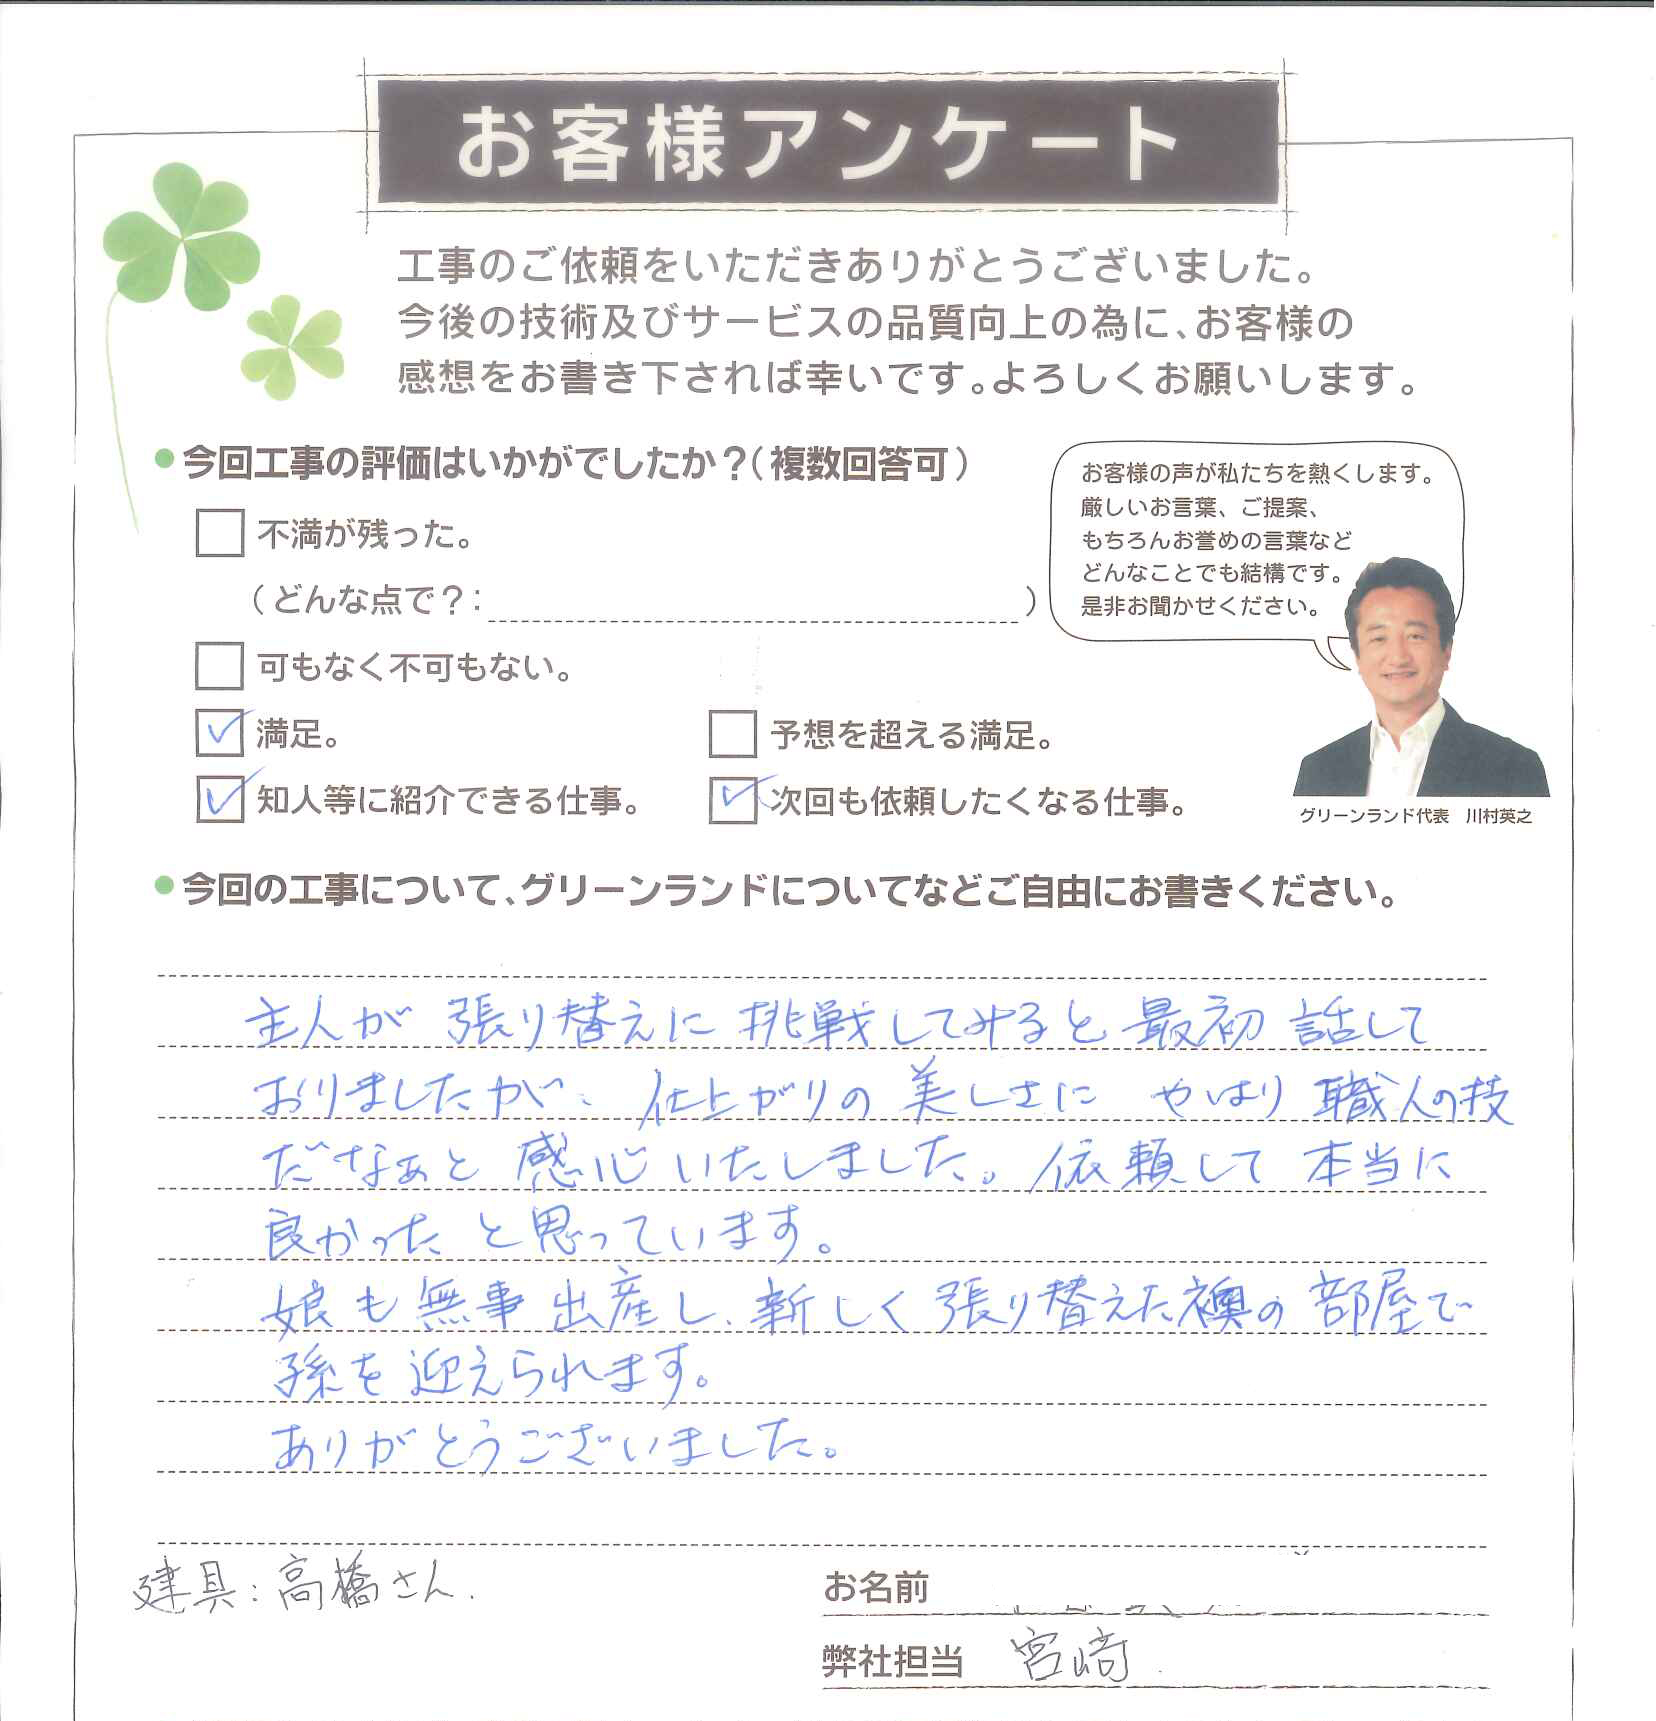 お客様アンケート
工事のご依頼をいただきありがとうございました。
今後の技術及びサービスの品質向上の為に、お客様の
感想をお書き下されば幸いです。よろしくお願いします。
●今回工事の評価はいかがでしたか?(複数回答可)
お客様の声が私たちを熱くします。
厳しいお言葉、ご提案、
もちろんお誉めの言葉など
どんなことでも結構です。
是非お聞かせください。
不満が残った。
(どんな点で?: )
可もなく不可もない。
満足。
予想を超える満足。
知人等に紹介できる仕事。
次回も依頼したくなる仕事。
グリーンランド代表 川村英之
●今回の工事について、グリーンランドについてなどご自由にお書きください。
主人が 張り替えに 挑戦してみると 最初 話して
おりましたが、仕上がりの 美しさに やはり 職人の技
だなぁと 感心いたしました。依頼して 本当に
良かった と思っています。
娘も 無事 出産し、新しく 張り替えた襖の 部屋で
孫を 迎えられます。
ありがとうございました。
建具:高橋さん.
お名前
弊社担当 宮崎